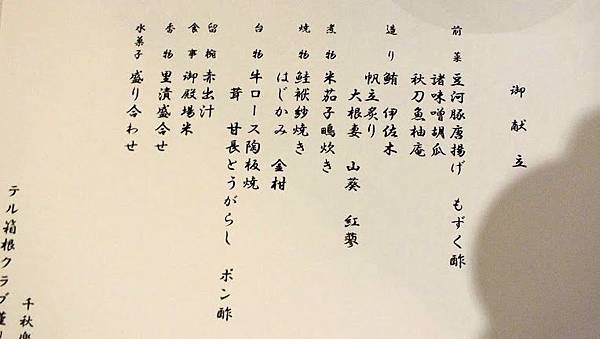 御献立
前菜 豆河豚唐揚げ もずく酢
諸味噌胡瓜
秋刀魚柚庵
造り 鮪 伊佐木
帆立炙り
大根妻 山葵 紅蓼
煮物 米茄子鴫炊き
焼物 鮭袱紗焼き
はじかみ 金柑
台物 牛ロース陶板焼
茸 甘長とうがらし ポン酢
留椀 赤出汁
食事 御殿場米
香物 里漬盛合せ
水菓子 盛り合わせ
千秋楽
テル箱根クラブ